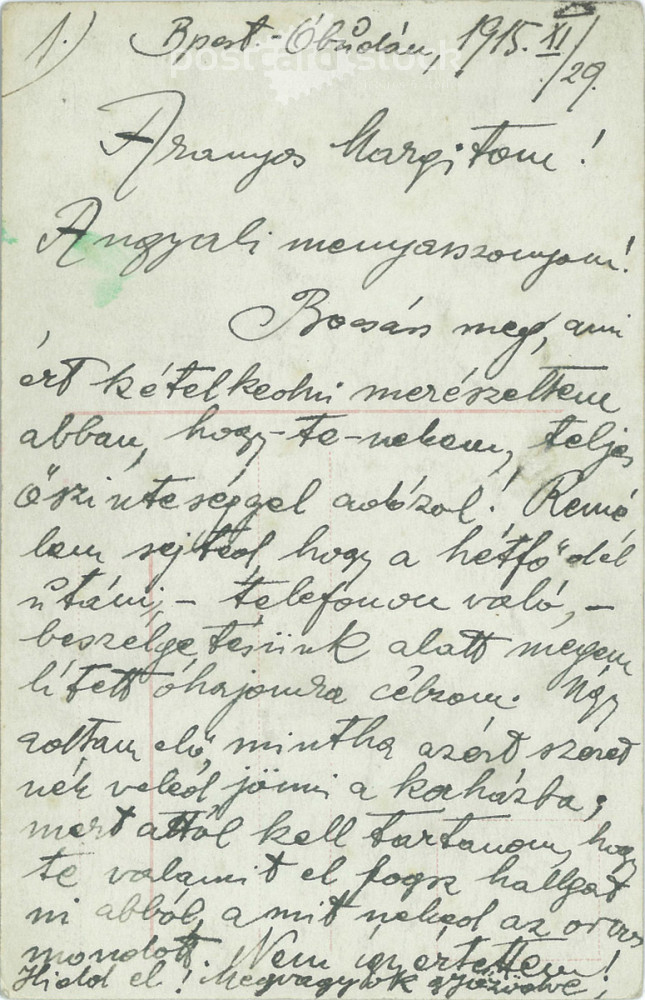 1.) Bpest.-Óbudán, 1915. XI/29.
postcard stock
Aranyos Margitom!
Angyali menyasszonyom!
Bocsáss meg, ami
ért kételkedni merészeltem
abban, hogy-te-nekem, teljes
őszinteséggel adózol! Remé
lem sejted hogy a hétfő dél
utáni, - telefonon való, -
beszélgetésünk alatt megem
lített óhajomra célzom. Úgy
adtam elő, mintha azért szeret
nék veled jönni a korházba,
mert attól kell tartanom, hogy
te valamit el fogsz hallgat
ni abból, amit neked az orvos
mondott. Nem így értettem!
Hidd el! Megvagyok győződve,